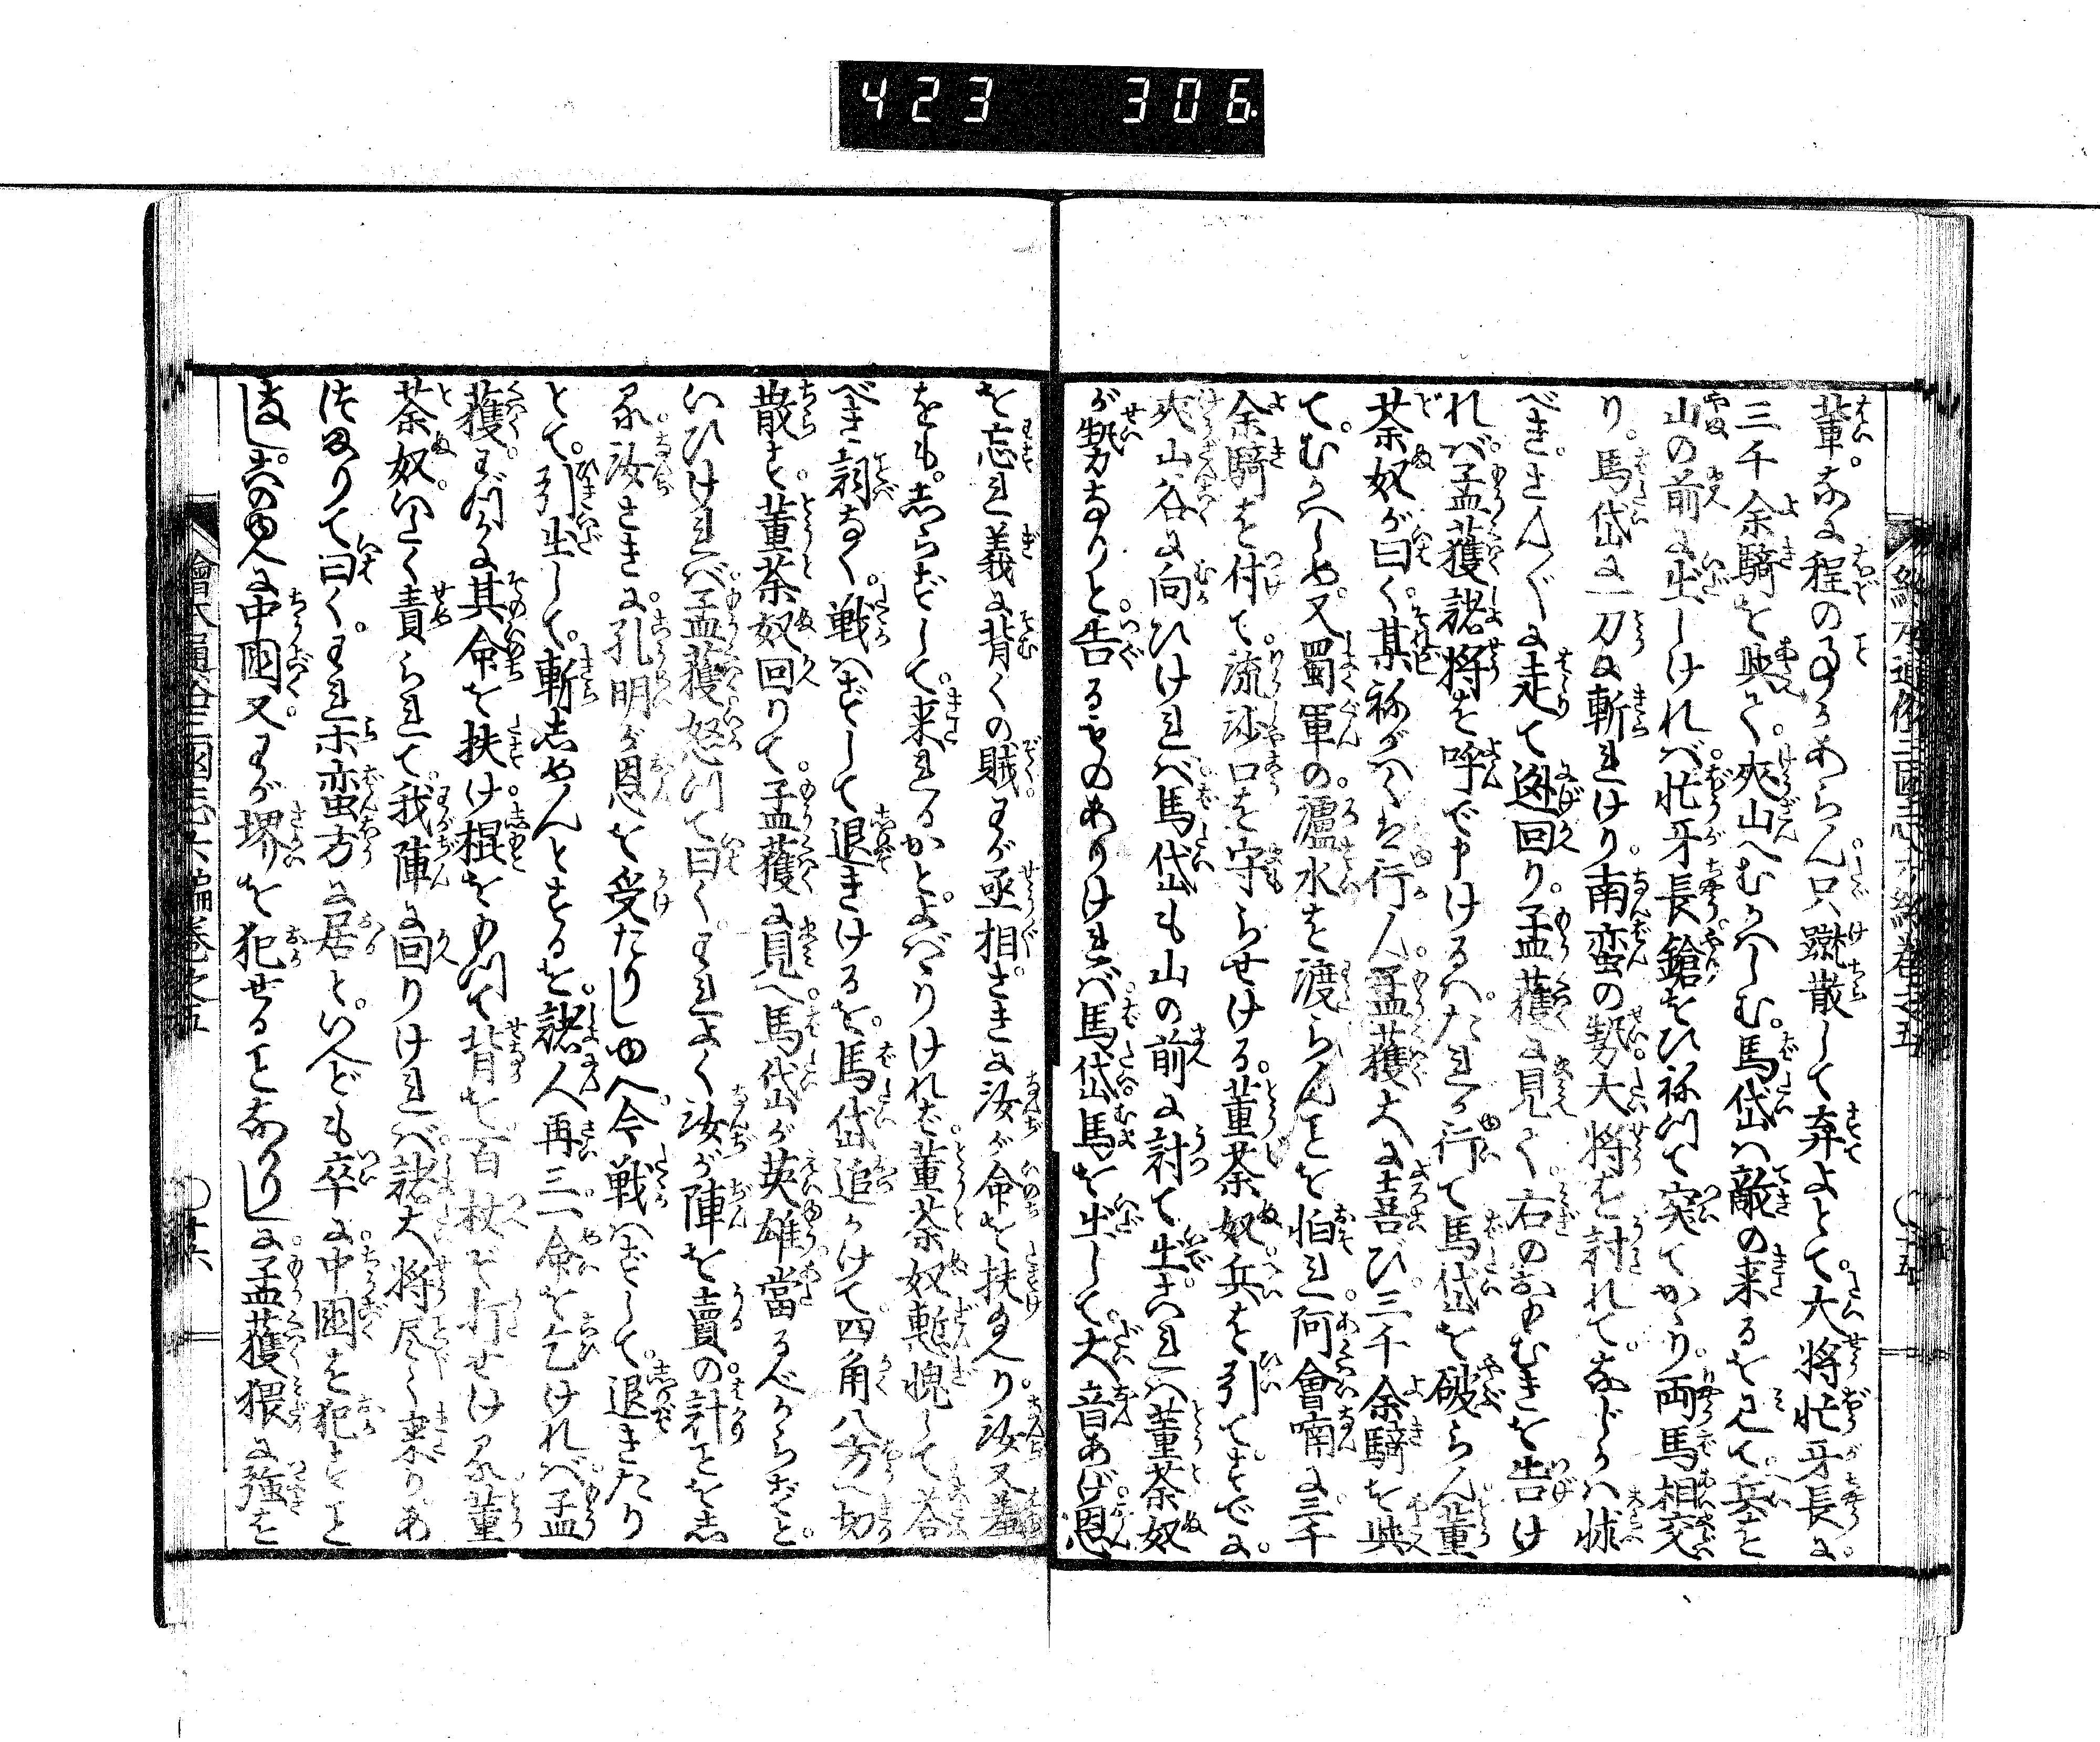 423 306
輩。なに程の事かあらん。只蹴散して弃よとて。大将忙牙長に。
三千余騎を與へ。夾山へむかへしむ。馬岱ハ敵の来るを見て兵を
山の前に出しけれバ。忙牙長鎗をひねつて突てかゝり両馬相交
り。馬岱に一刀に斬れけり。南蛮の勢大将を討れて。なじかハ悚
べき。さん〴〵に走て迯回り。孟獲に見へ。右のおもむきを告け
れバ。孟獲諸将を呼で申けるハ。たれか行て馬岱を破らん。董
荼奴が曰く。某ねがハくハ行ん。孟獲大に喜び。三千余騎を與
て。むかへしめ。又蜀軍の瀘水を渡らんことを怕れ。阿會喃に三千
余騎を付て。流沙口を守らせける。董荼奴兵を引て。すでに。
夾山谷に向ひけれバ。馬岱も山の前に討て出。これハ董荼奴
が勢なりと。告るものありけれバ。馬岱馬を出して。大音あげ。恩
を忘れ義に背くの賊。わが丞相。さきに汝が命を扶給へり。汝又羞
をも。しらずして。来れるかと。よバゝりけれバ。董荼奴慙愧して。荅
べき詞なく。戦ハずして退きけるを。馬岱追かけて。四角八方へ切
散す。董荼奴回りて。孟獲に見へ。馬岱が英雄當るべからずと。
いひけれバ。孟獲怒つて曰く。われよく汝が陣を賣の計ことをし
る。汝さきに。孔明が恩を受たりしゆへ。今戦ハずして。退きたり
とて。引出して。斬しめんとするを。諸人再三命を乞けれバ。孟
獲。わづかに其命を扶け。棍をもつて背を百杖ぞ打せける。董
荼奴。いたく責られて。我陣に回りけれバ。諸大将尽く来りあ
つまりて曰く。われら蛮方に居と。いへども。卒に中國を犯すこと
なし。そのゆへに中國又。わが堺を犯せることなかりしに。孟獲猥に強を